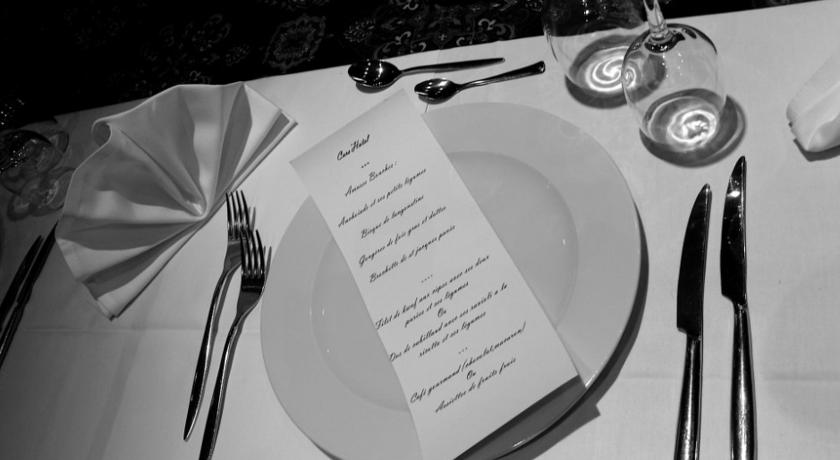 Ceor Hotel
***
Amuses Bouches :
Anchoïade et ses petits légumes
Bisque de langoustine
Gougères de foie gras et dattes
Brochette de st jacques panée
****
Filet de bœuf aux cèpes avec ses deux
purées et ses légumes
Ou
Dos de cabillaud avec ses ravioli a la
ricotta et ses légumes
***
Café gourmand (chocolat,macaron)
Ou
Assiettes de fruits frais